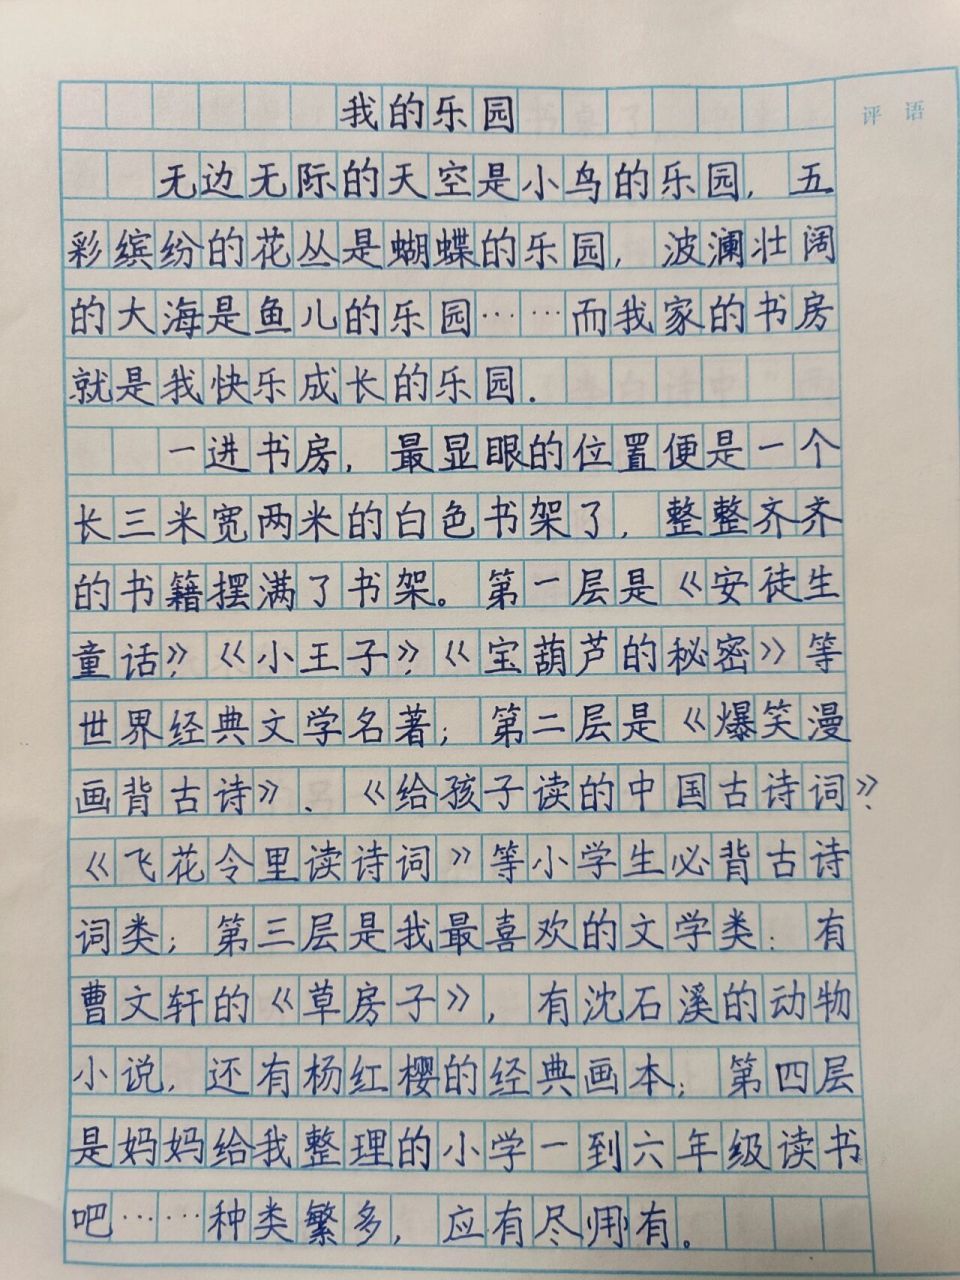 我的乐园
评语
无边无际的天空是小鸟的乐园，五
彩缤纷的花丛是蝴蝶的乐园，波澜壮阔
的大海是鱼儿的乐园……而我家的书房
就是我快乐成长的乐园.
一进书房，最显眼的位置便是一个
长三米宽两米的白色书架了，整整齐齐
的书籍摆满了书架。第一层是《安徒生
童话》、《小王子》、《宝葫芦的秘密》等
世界经典文学名著；第二层是《爆笑漫
画背古诗》、《给孩子读的中国古诗词》、
《飞花令里读诗词》等小学生必背古诗
词类；第三层是我最喜欢的文学类：有
曹文轩的《草房子》，有沈石溪的动物
小说，还有杨红樱的经典画本；第四层
是妈妈给我整理的小学一到六年级读书
吧……种类繁多，应有尽用有。